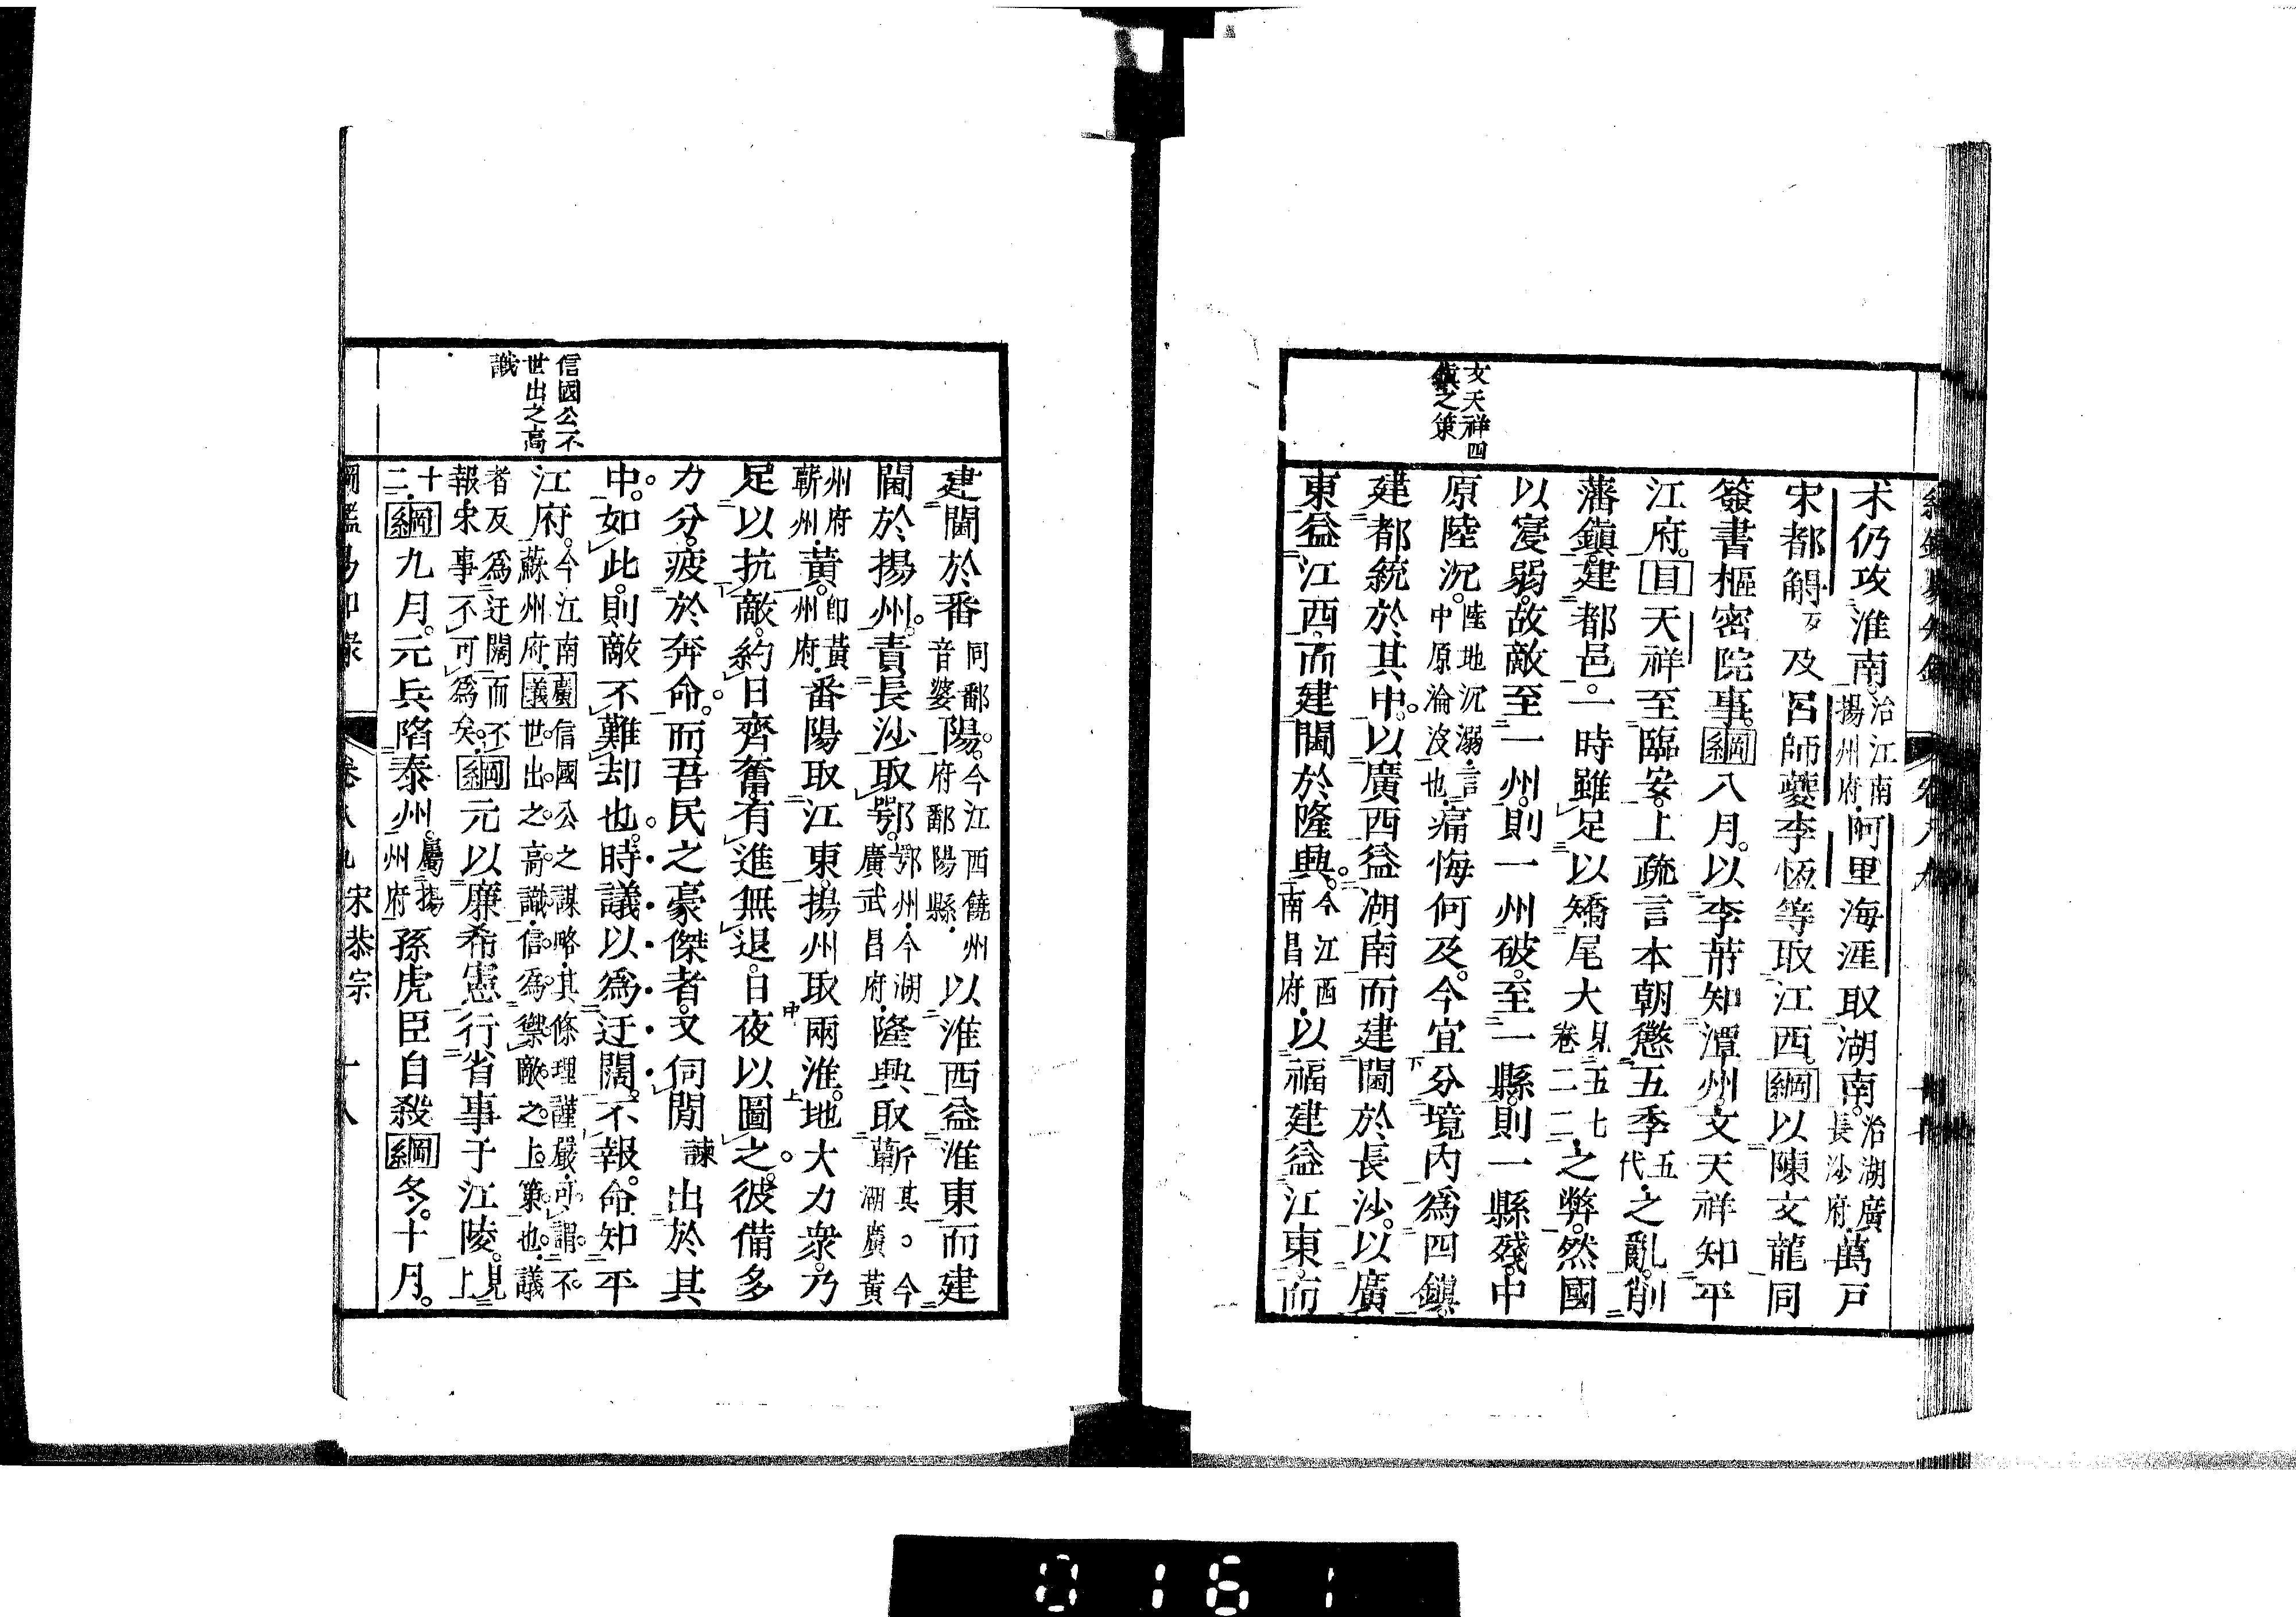 文天祥四
鎮之策
朮仍攻淮南治江南揚州府.阿里海涯取湖南。治湖廣長沙府.萬戸
宋都䚟及呂師夔李恆等取江西。綱以陳文龍同
簽書樞密院事。綱八月。以李芾知潭州。文天祥知平
江府。目天祥至臨安。上疏言本朝懲五季五代.之亂。削
藩鎮。建都邑。一時雖足以矯尾大見五七卷二二.之弊。然國
以寖弱。故敵至一州。則一州破。至一縣。則一縣殘。中
原陸沉。陸地沉溺.言中原淪沒也.痛悔何及。今宜分境內為四鎮。
建都統於其中。以廣西益湖南而建閫於長沙。以廣
東益江西。而建閫於隆興。今江西南昌府.以福建益江東。而
信國公不
世出之高
識
建閫於番同鄱音婆陽。今江西饒州府鄱陽縣.以淮西益淮東而建
閫於揚州。責長沙取鄂。鄂州.今湖廣武昌府.隆興取蘄其。今湖廣黃
州府蘄州.黃。即黃州府.番陽取江東。揚州取兩淮。地大力衆。乃
足以抗敵。約日齊奮。有進無退。日夜以圖之。彼備多
力分。疲於奔命。而吾民之豪傑者。又伺閒諫出於其
中。如此。則敵不難却也。時議以為迂闊。不報。命知平
江府。今江南蘇州府.廣義信國公之謀略.其條理謹嚴.可謂不世出之高識.信為禦敵之上策也.議
者反為迂闊而不報.宋事不可為矣。綱元以廉希憲行省事于江陵。見上
十二.綱九月。元兵陷泰州。屬揚州府孫虎臣自殺綱冬。十月。
卷八九 宋恭宗 十八